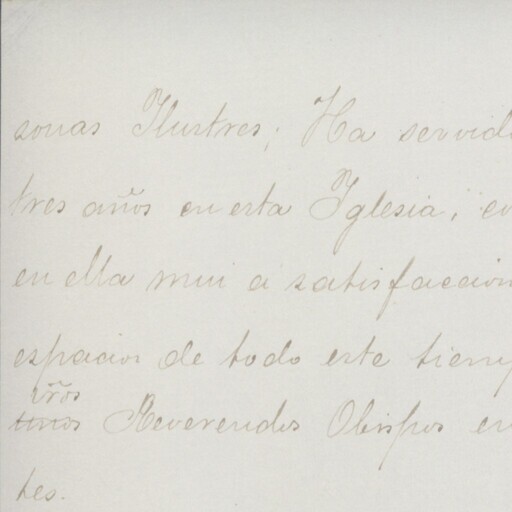 sonas Ilustres; Ha servido
tres años en esta Iglesia, co
en ella mui a satisfaccion
espacios de todo este tiemp
vr̃os
unos Reverendos Obispos en
tes.